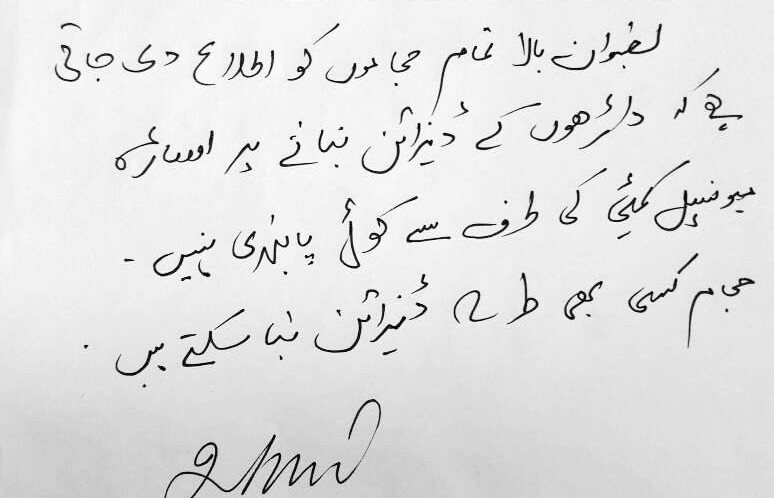 بعنوان بالا تمام حجاموں کو اطلاع دی جاتی
ہے کہ داڑھوں کے ڈیزائن بنانے پر
میونسپل کمیٹی کی طرف سے کوئی پابندی نہیں -
حجام کسی بھی طرح ڈیزائن بنا سکتے ہیں .